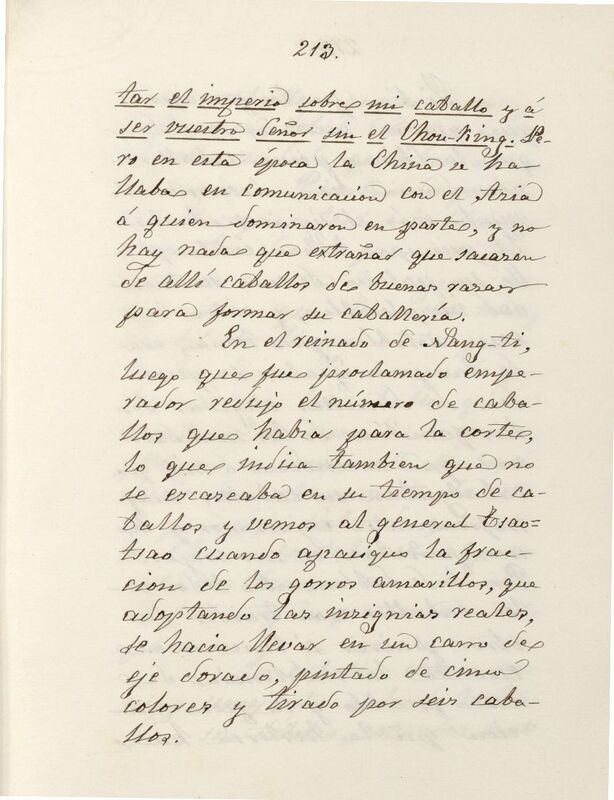 213.
tar el imperio sobre mi caballo y á
ser vuestro Señor sin el Chou-King. Pe-
ro en esta época la China se ha-
llaba en comunicacion con el Asia
á quien dominaron en parte, y no
hay nada que extrañar que sacasen
de allí caballos de buenas razas
para formar su caballería.
En el reinado de Nang-ti,
luego que fue proclamado empe-
rador redujo el número de caba-
llos que habia para la corte,
lo que indica tambien que no
se escaseaba en su tiempo de ca-
ballos y vemos al general Tsao-
tsao cuando apaciguo la frac-
cion de los gorros amarillos, que
adoptando las insignias reales,
se hacia llevar en un carro de
eje dorado, pintado de cinco
colores y tirado por seis caba-
llos.